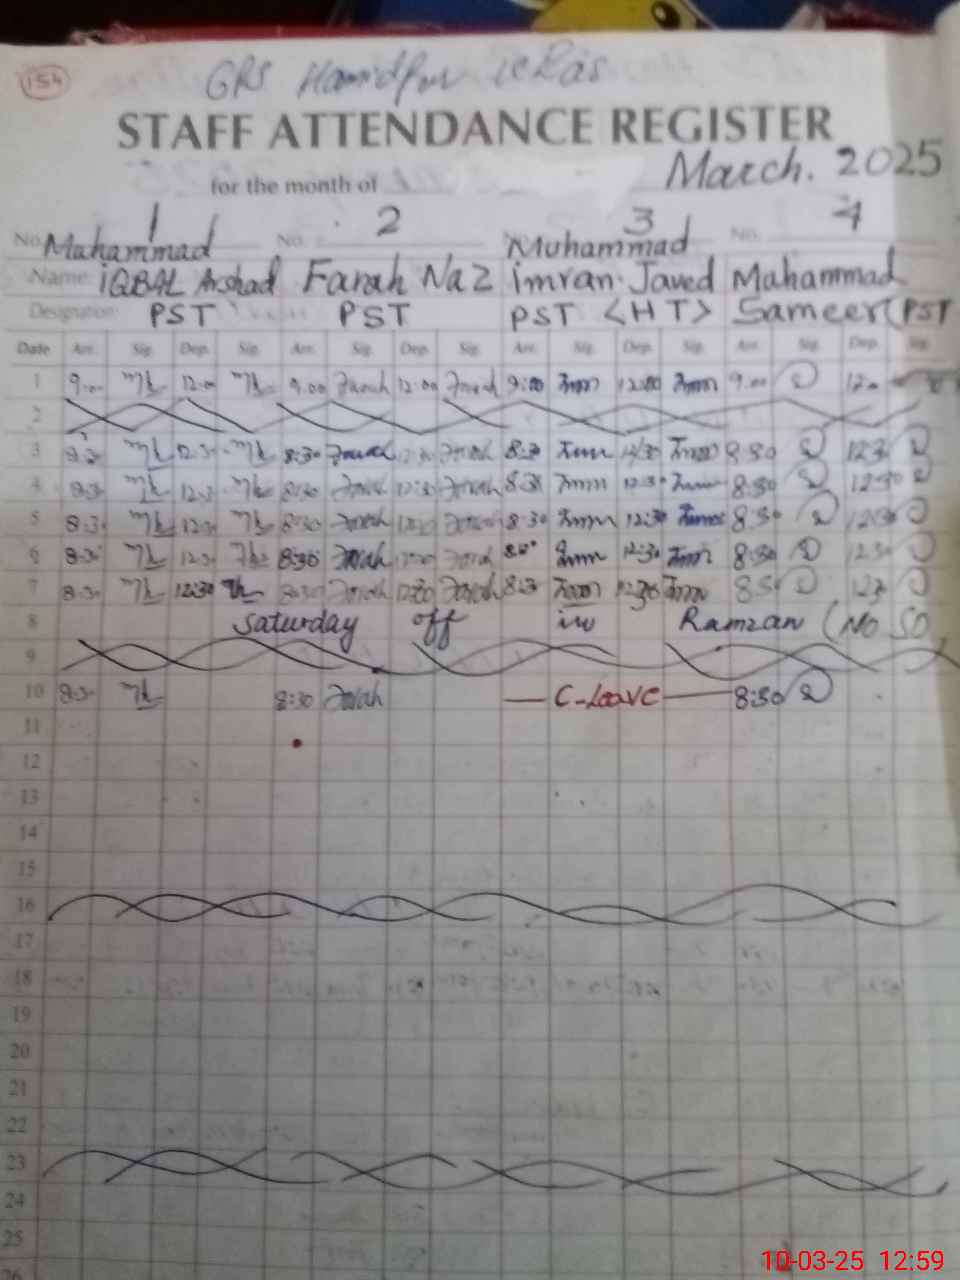 154
GPS Hamidpur
STAFF ATTENDANCE REGISTER
for the month of March. 2025
No. 1 No. 2 3 No. 4
Muhammad Muhammad
Name: iQBAL Arshad Farah Naz imran Javed Muhammad
Designation: PST PST PST <HT> Sameer(PST
Date Arr. Sig. Dep. Sig. Arr. Sig. Dep. Sig. Arr. Sig. Dep. Sig. Arr. Sig. Dep. Sig.
1 9.00 12.00 9.00 Farah 12:00 Farah 9:00 Imran 12:00 Imran 9.00 12.00
2
3 8:30 12:30 8:30 Farah 12:30 Farah 8:30 Imran 12:30 Imran 8:30 12:30
4 8:30 12:30 8:30 Farah 12:30 Farah 8:30 Imran 12:30 Imran 8:30 12:30
5 8:30 12:30 8:30 Farah 12:30 Farah 8:30 Imran 12:30 Imran 8:30 12:30
6 8:30 12:30 8:30 Farah 12:30 Farah 8:30 Imran 12:30 Imran 8:30 12:30
7 8:30 12:30 8:30 Farah 12:30 Farah 8:30 Imran 12:30 Imran 8:30 12:30
8 Saturday off in Ramzan (NO SO
9
10 8:30 8:30 Farah — C-Leave — 8:30
11
12
13
14
15
16
17
18
19
20
21
22
23
24
25
26
10-03-25 12:59